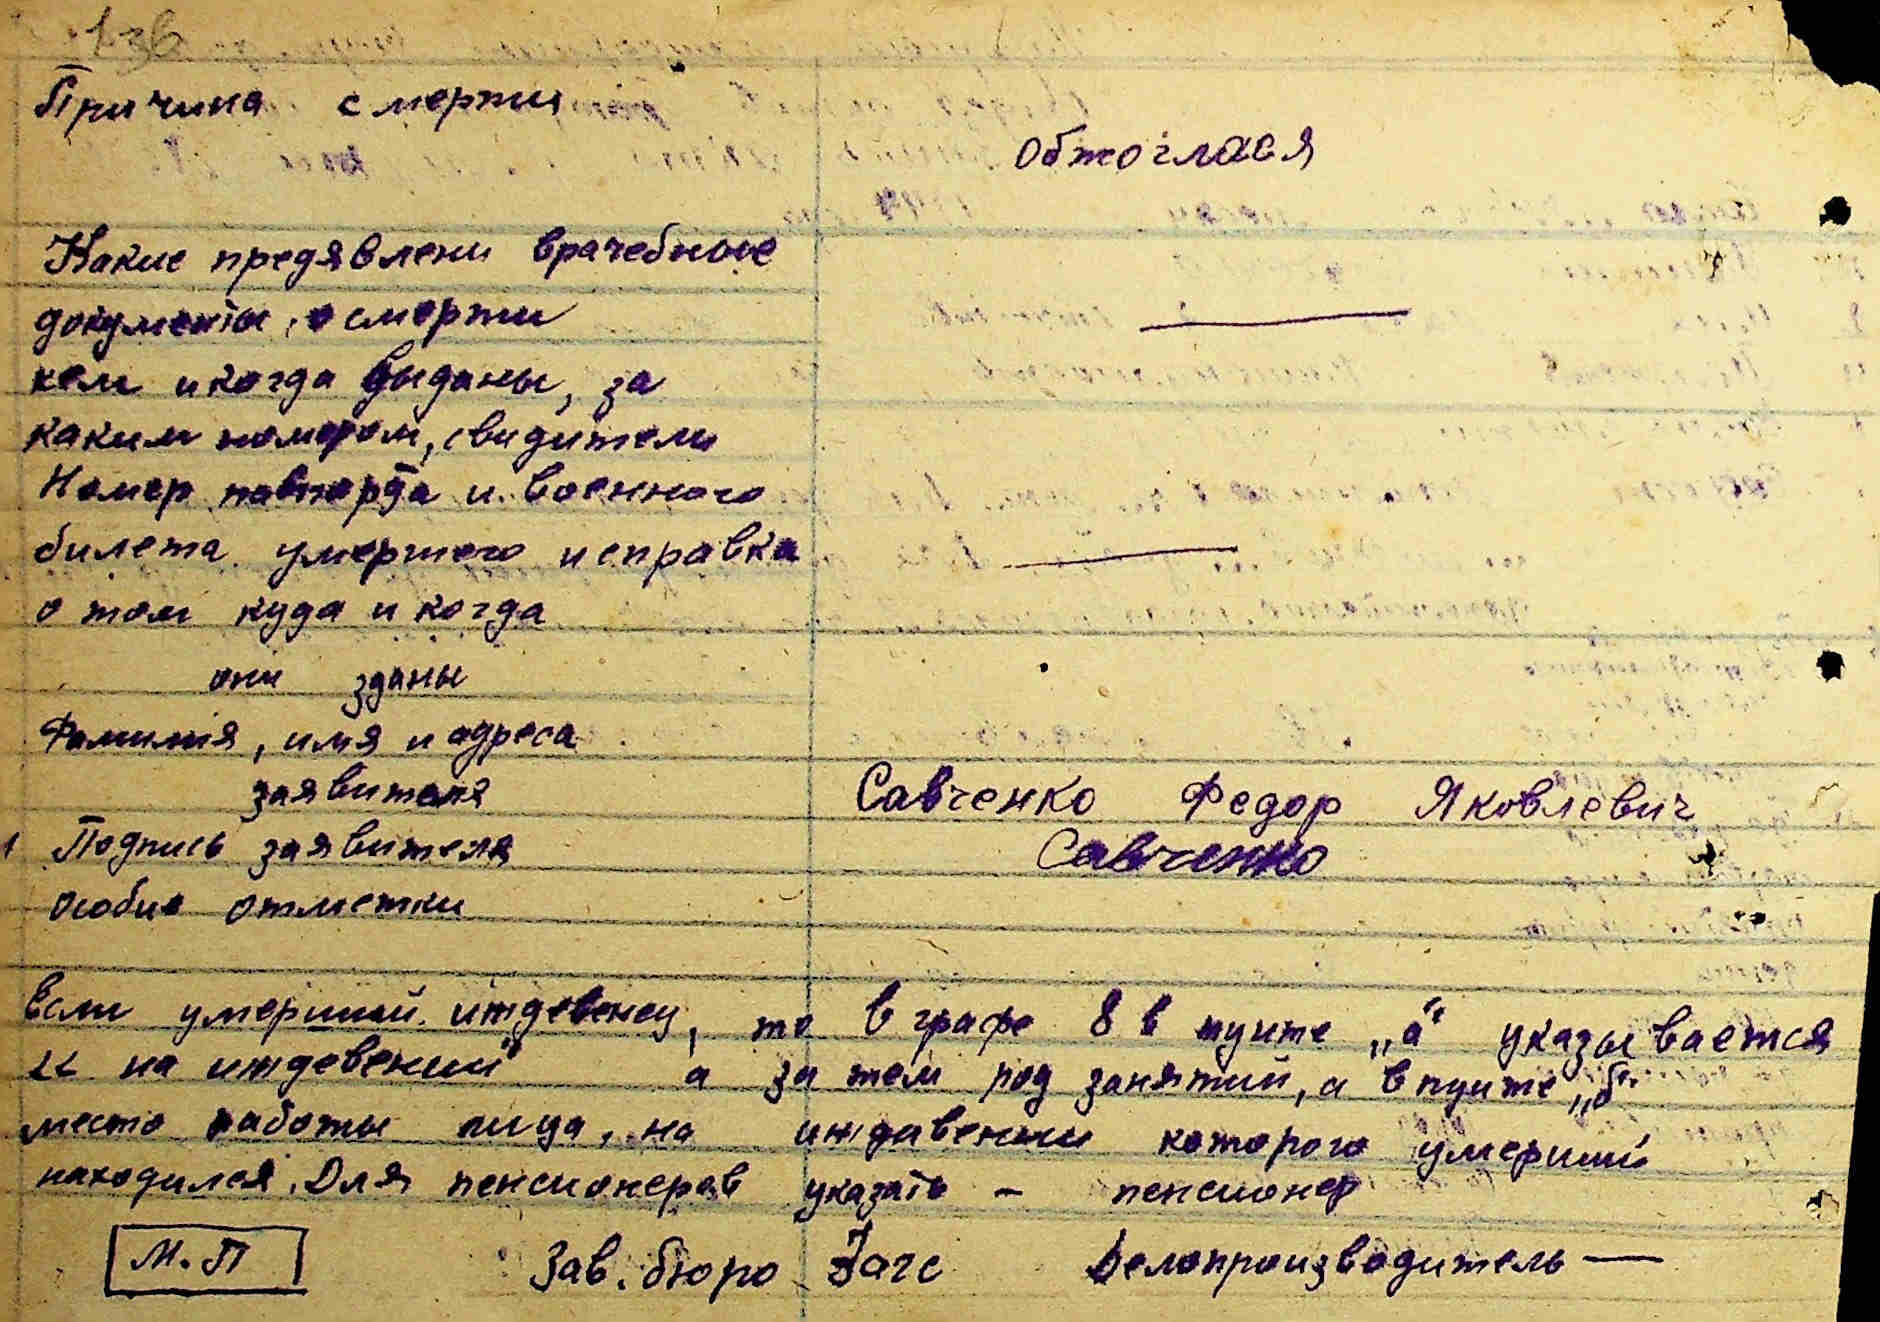 136
Причина смерти
обжоглася
Какие предявлени врачебные
документы, о смерти
кем и когда выданы, за
каким номером, свидители
Номер паспорта и военного
билета умершего и справка
о том куда и когда
они зданы
Фамилия, имя и адреса
заявителя
Савченко Федор Яковлевич
Подпись заявителя
Савченко
особие отметки
если умерший иждевенец, то в графе 8 в пункте „а“ указывается
на иждевении" а за тем род занятий, а в пункте „б“
место работы лица, на иждевении которого умерший
находился. Для пенсионеров указать - пенсионер
М.П
Зав. бюро Загс Делопроизводитель —